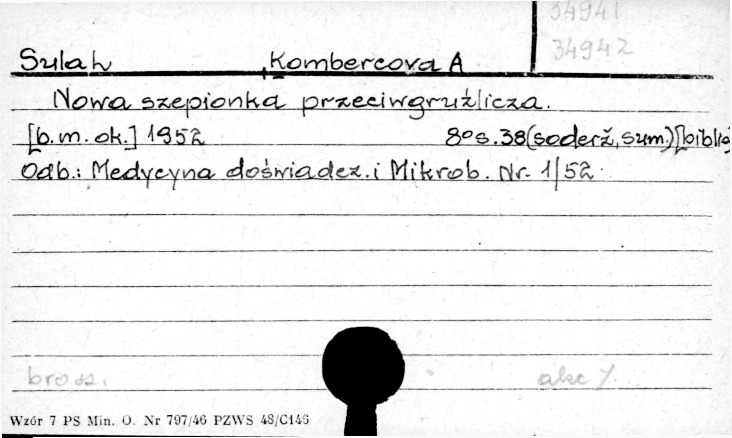 34941
34942
Sula L , Kombercova A
Nowa szepionka przeciwgruźlicza.
[b.m.ok.] 1952 8° s.38 (soderž, sum.) [biblig
Odb.: Medycyna doświadcz. i Mikrob. Nr. 1/52
brosz. akc /
Wzór 7 PS Min. O. Nr 797/46 PZWS 48/C146